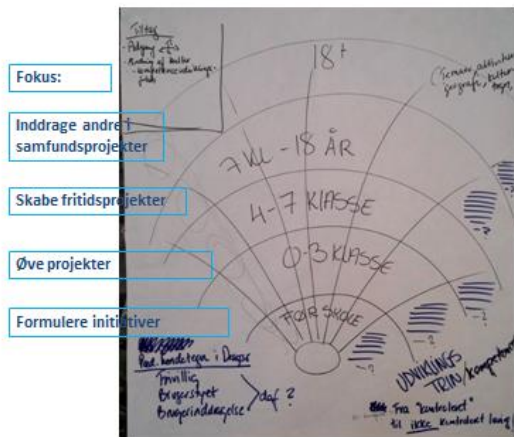 Fokus:
Inddrage andre i
samfundsprojekter
Skabe fritidsprojekter
Øve projekter
Formulere initiativer
Tiltag
18+
7 KL - 18 ÅR
4-7 KLASSE
0-3 KLASSE
FØR SKOLE
-?
-?
-?
-?
-?
Pæd. kendetegn i
Frivillig
Brugerstyret
Brugerinddragelse
daf ?
UDVIKLINGS
TRIN/kompetence
Fra "kontrolleret"
til ikke kontrolleret